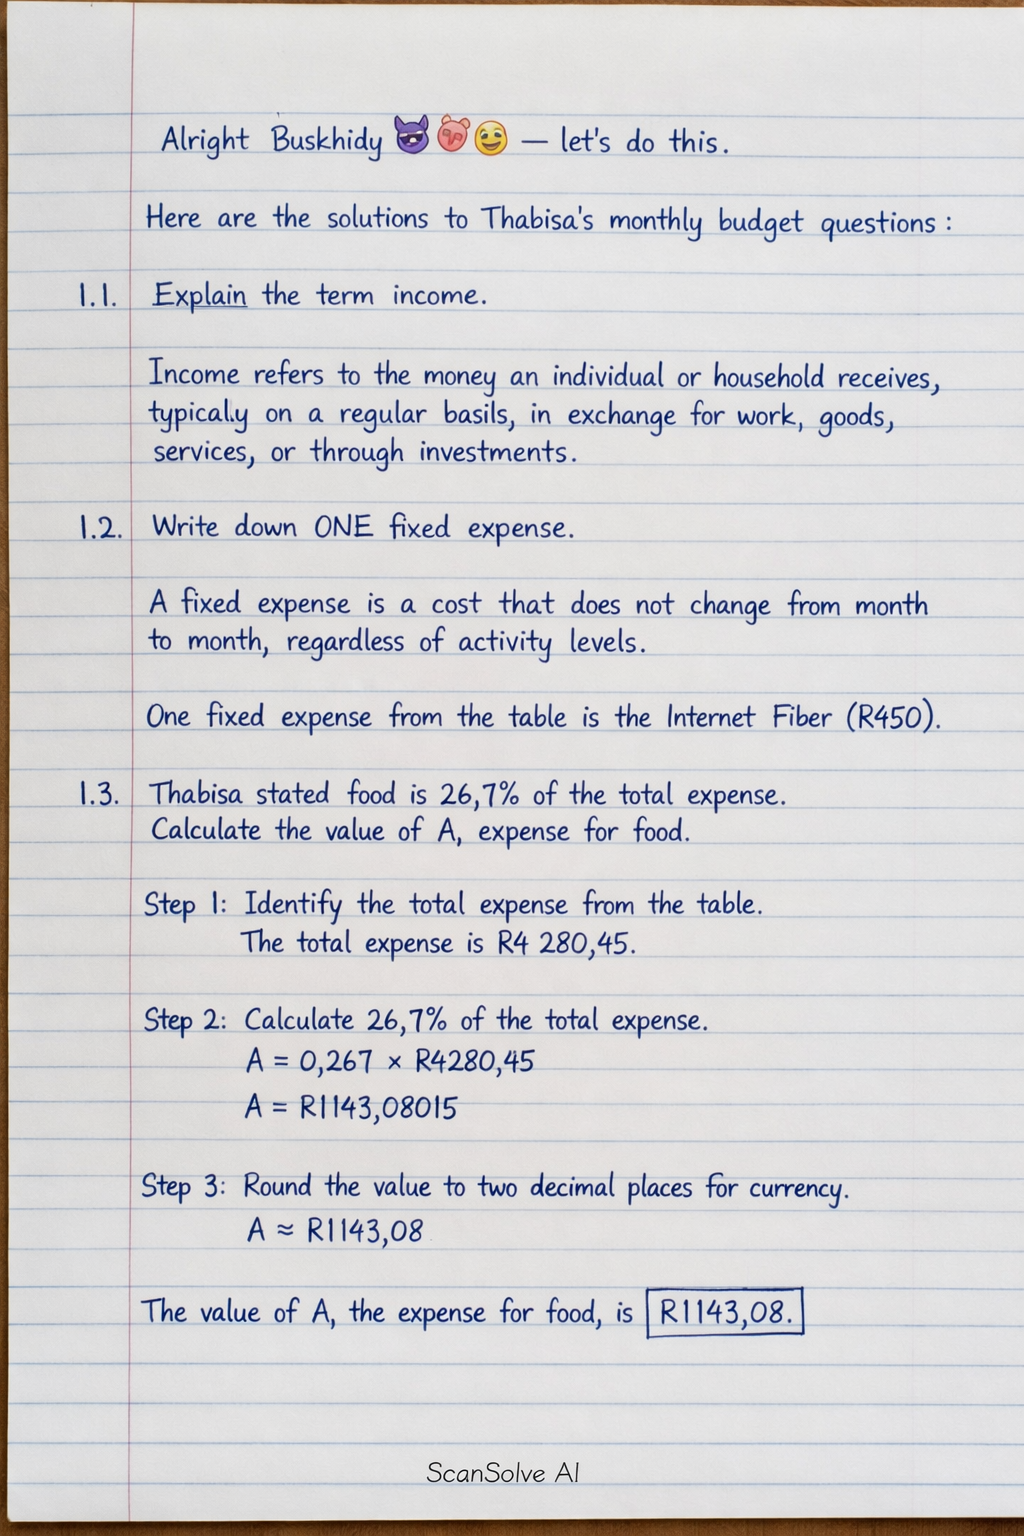 Alright Buskhidy 😈🐷😉 — let's do this.
Here are the solutions to Thabisa's monthly budget questions :
1.1. Explain the term income.
Income refers to the money an individual or household receives,
typically on a regular basils, in exchange for work, goods,
services, or through investments.
1.2. Write down ONE fixed expense.
A fixed expense is a cost that does not change from month
to month, regardless of activity levels.
One fixed expense from the table is the Internet Fiber (R450).
1.3. Thabisa stated food is 26,7% of the total expense.
Calculate the value of A, expense for food.
Step 1: Identify the total expense from the table.
The total expense is R4 280,45.
Step 2: Calculate 26,7% of the total expense.
A = 0,267 × R4280,45
A = R1143,08015
Step 3: Round the value to two decimal places for currency.
A ≈ R1143,08
The value of A, the expense for food, is R1143,08.
ScanSolve AI